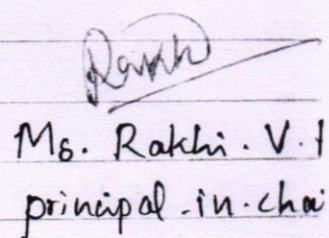 Rakhi
Ms. Rakhi. V.
principal-in-cha